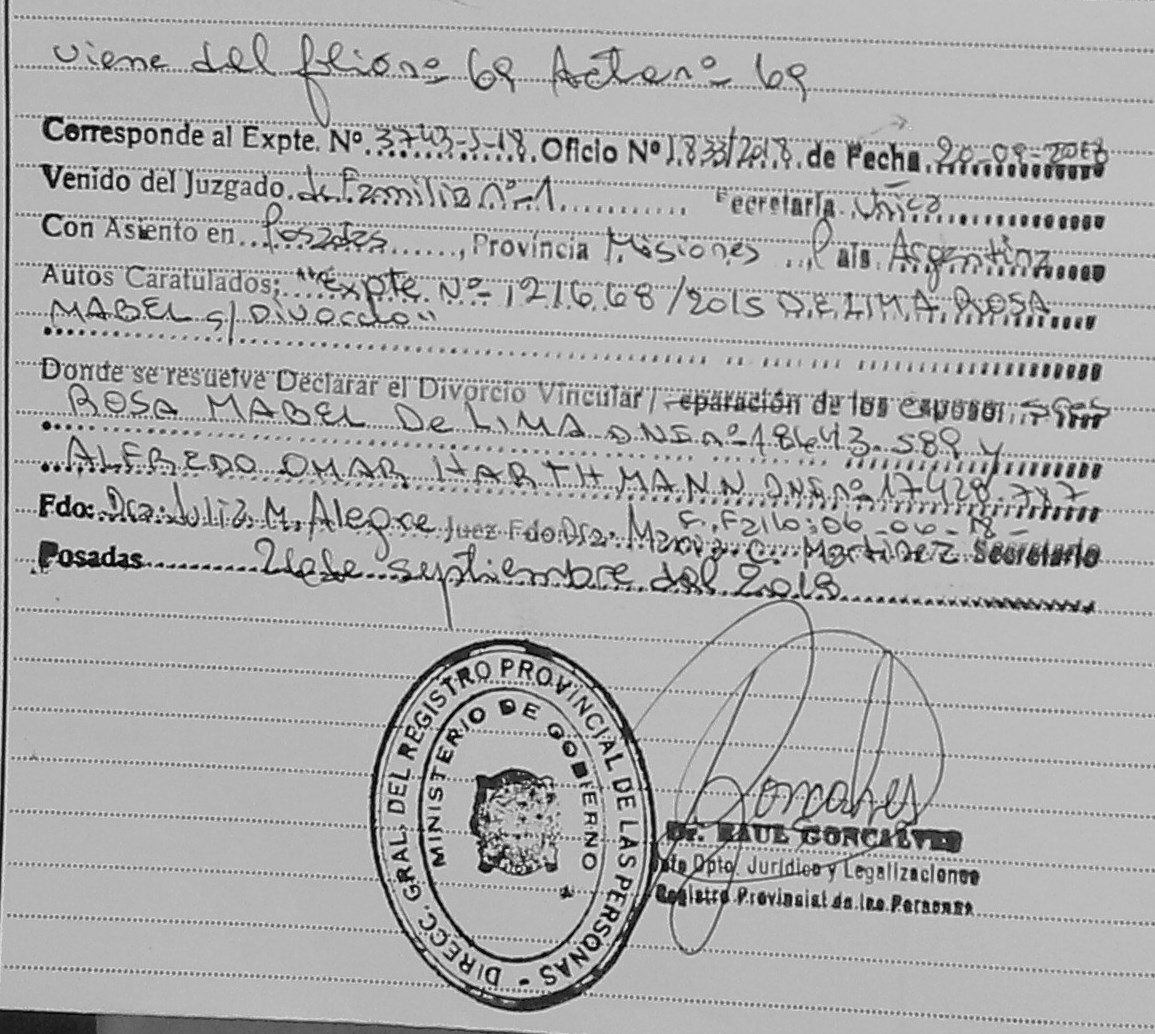 viene del folio nº 69 Acta nº 69
Corresponde al Expte. Nº 3743-J-18. Oficio Nº 1833/2018 de Fecha 20-09-2018
Venido del Juzgado de Familia nº 1 Secretaría Única
Con Asiento en Posadas, Provincia Misiones País Argentina
Autos Caratulados: "Expte. Nº 121668/2015 DE LIMA ROSA
MABEL s/ Divorcio"
Donde se resuelve Declarar el Divorcio Vincular / eparación de los esposos Sres
ROSA MABEL De LIMA DNI nº 18.643.589 y
ALFREDO OMAR HARTHMANN DNI nº 17.428.787
F. Fallo: 06-06-18
Fdo: Dra. Julia M. Alegre Juez Fdo Dra. María C. Martinez Secretario
Posadas de septiembre del 2018
DIRECC. GRAL. DEL REGISTRO PROVINCIAL DE LAS PERSONAS
MINISTERIO DE GOBIERNO
Dr. RAUL GONCALVES
Jefe Dpto. Jurídico y Legalizaciones
Registro Provincial de las Personas